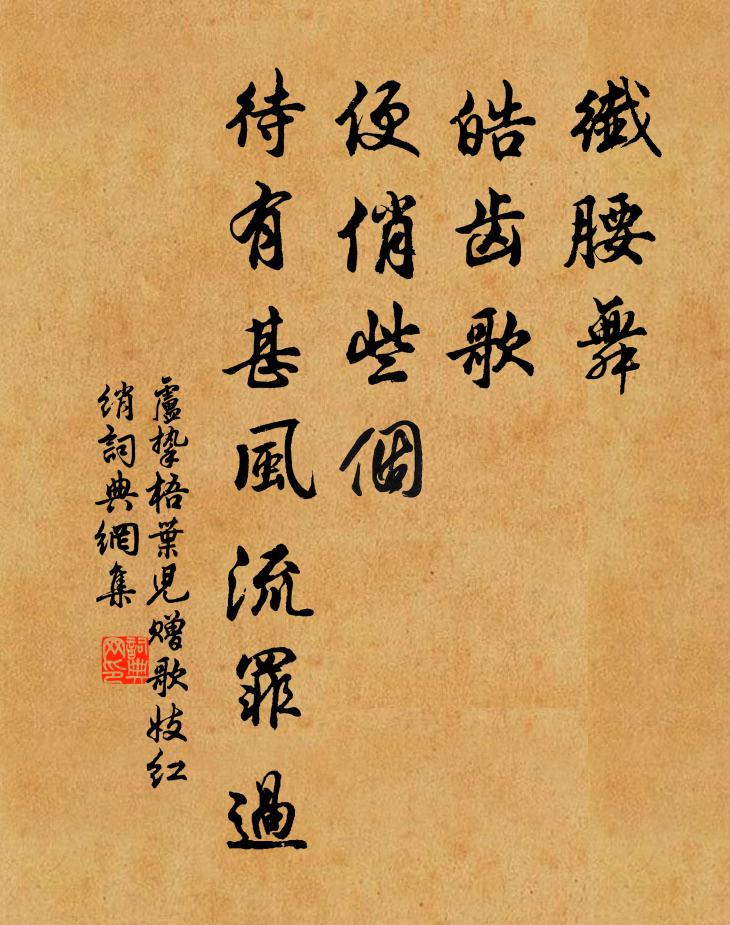 纖腰舞
皓齿歌
便俏些個
待有甚風流罪過
盧摯梧葉児贈歌妓紅
绡詞典網集
詞典
网印